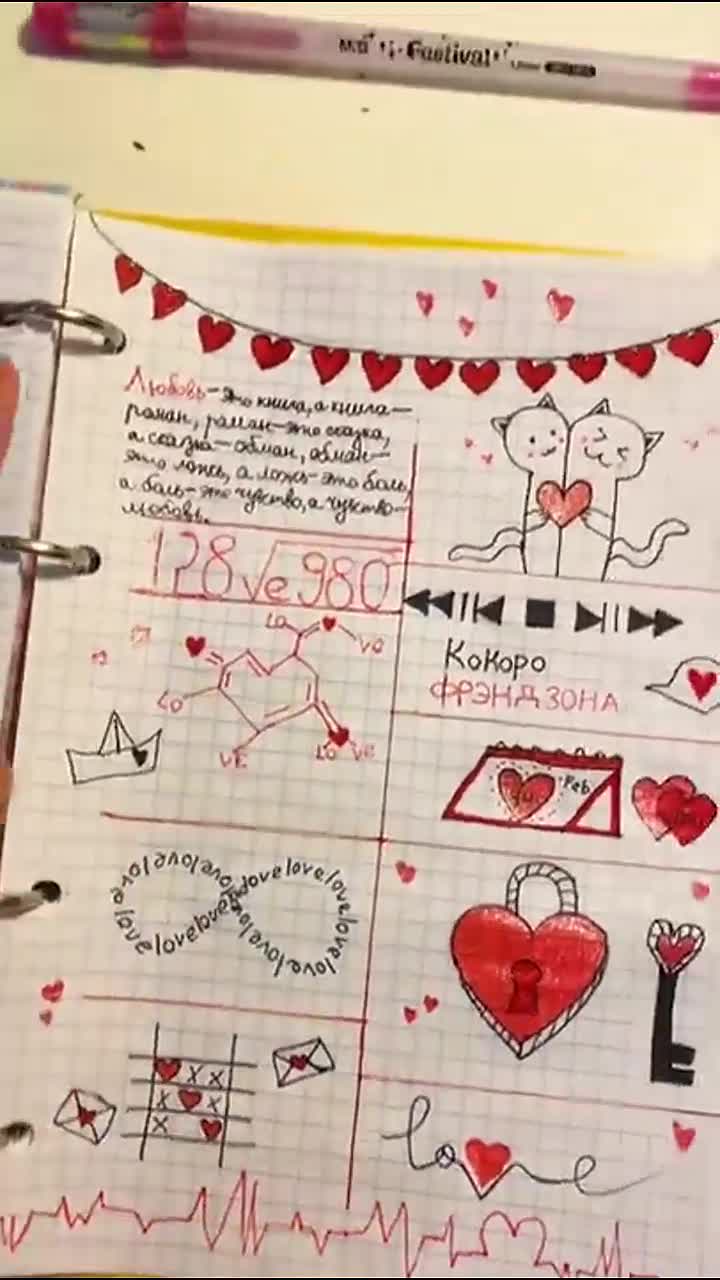 Festival
Любовь-это книга, а книга—
роман, роман-это сказка,
а сказка—обман, обман—
это ложь, а ложь-это боль,
а боль-это чувство, а чувство-
любовь.
128√e980
LO
VO
LO
VE
LO VE
Кокоро
ФРЭНДЗОНА
14
Feb
lovelovelovelovelovelovelovelovelovelove
X X
X X
X
love